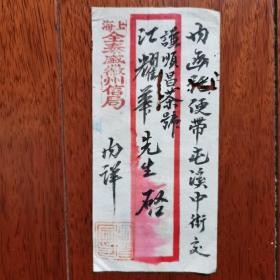 内函便帶屯溪中街交
謙順昌茶號
江耀華先生啓
内詳
上海
全泰盛徽州信局